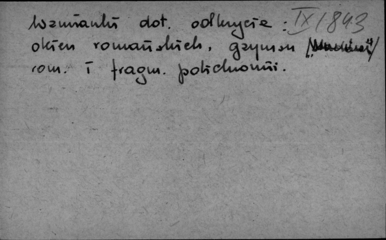 Wzmianki dot. odkrycia: IX 1843
okien romańskich, gzymsu
rom. i fragm. polichromii.